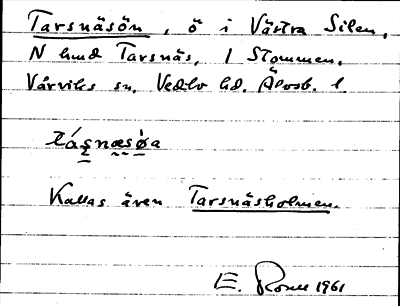 Tarsnäsön, ö i Västra Silen,
N hmd Tarsnäs, 1 Stommen.
Vårviks sn. Vedbo hd. Älvsb. l.
tásnæsøa
Kallas även Tarsnäsholmen.
E. 1961